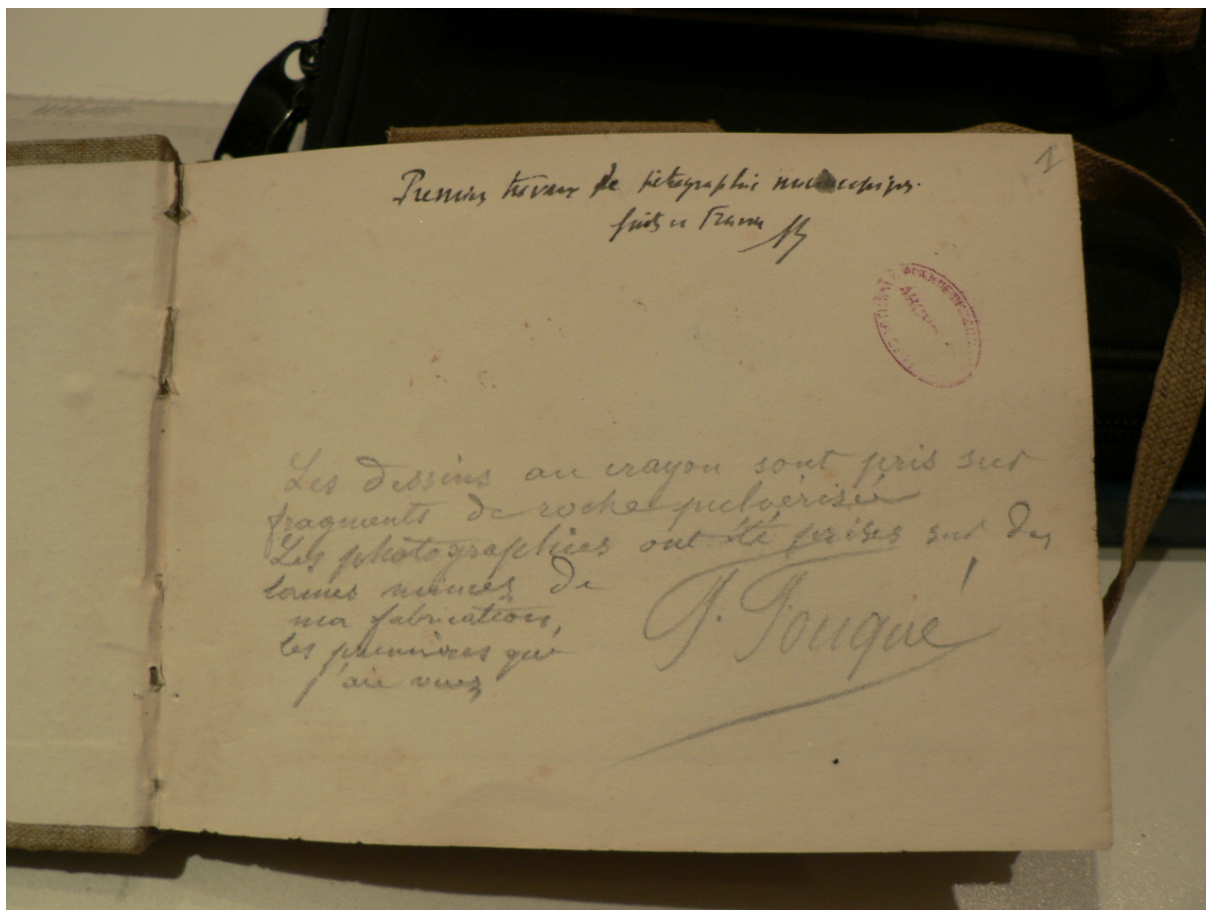 1
Premiers travaux de pétrographie microscopique
faits en France
ARCHI
Les dessins au crayon sont pris sur
fragments de roche pulvérisée
Les photographies ont été prises sur des
lames minces de
ma fabrication,
les premières que
j'aie vues
F. Fouqué